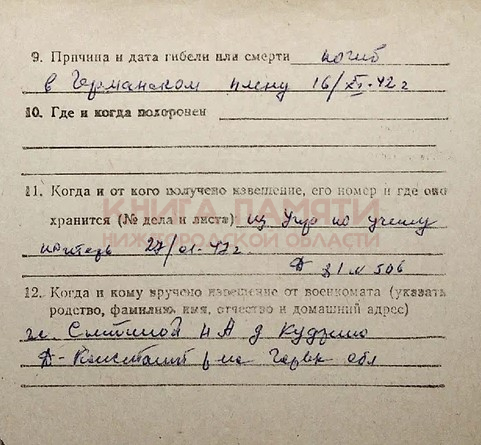 9. Причина и дата гибели или смерти погиб
в Германском плену 16/XI-42 г
10. Где и когда похоронен
11. Когда и от кого получено извещение, его номер и где оно
КНИГА ПАМЯТИ
хранится (№ дела и листа) из Упр по учету
НИЖЕГОРОДСКОЙ ОБЛАСТИ
потерь 27/01-47 г.
Д 81 N 506
12. Когда и кому вручено извещение от военкомата (указать
родство, фамилию, имя, отчество и домашний адрес)
Н А д
Д-Константин р на Горьк обл